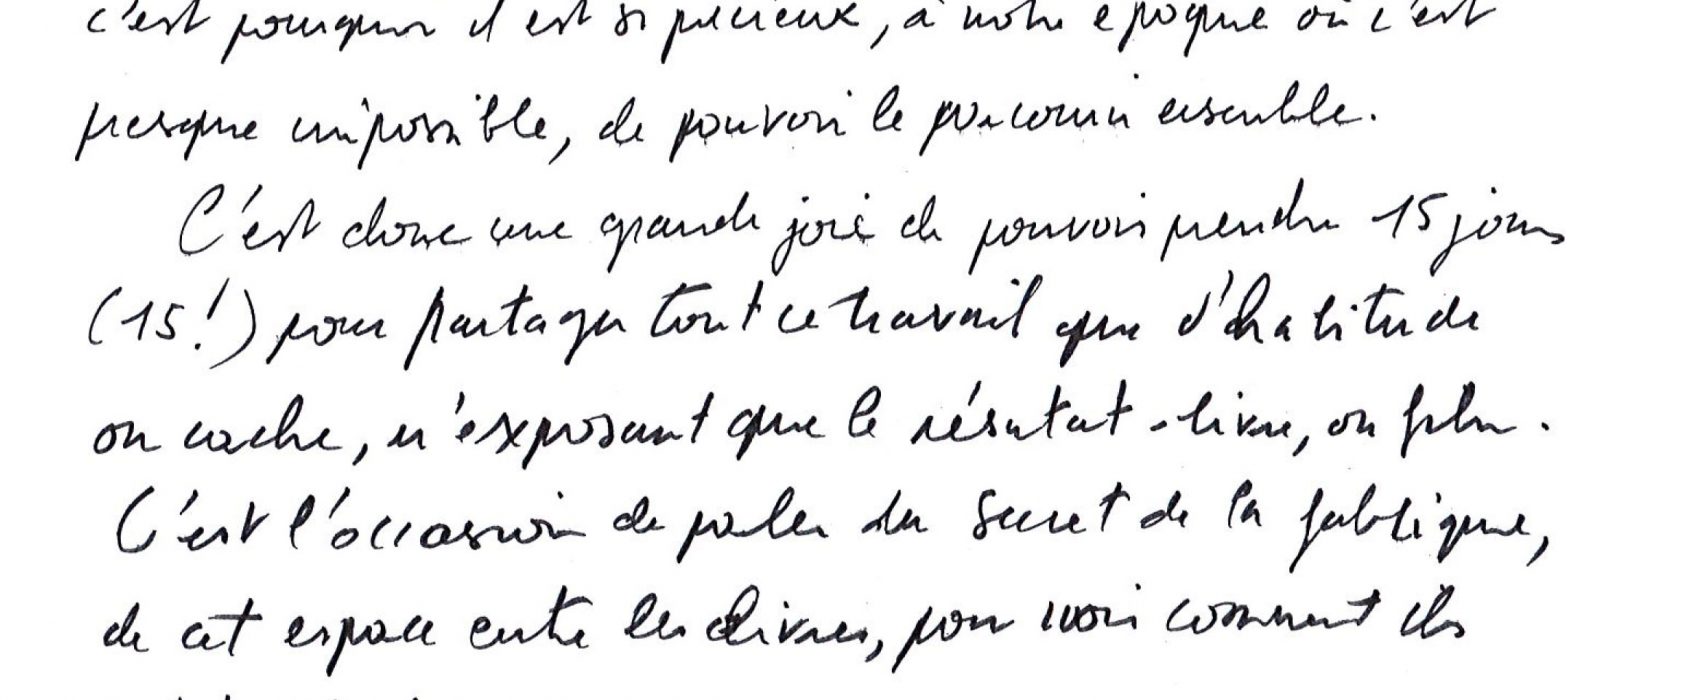 c'est pourquoi il est si précieux, à notre époque où c'est
presque impossible, de pouvoir le parcourir ensemble.
C'est donc une grande joie de pouvoir prendre 15 jours
(15!) pour partager tout ce travail que d'habitude
on cache, n'exposant que le résultat - livre, ou film.
C'est l'occasion de parler du secret de la fabrique,
de cet espace entre les livres, pour voir comment ils